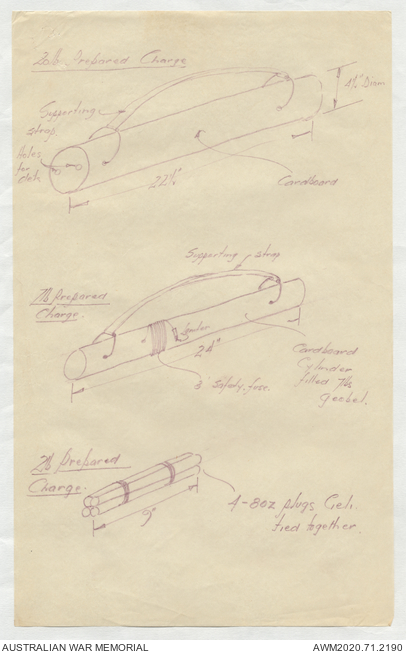 20lb Prepared Charge
4½" Diam
Supporting
strap.
Holes
for
dets
22½"
Cardboard
Supporting strap
7lb prepared
Charge.
24"
3' Safety fuse.
Cardboard
Cylinder
filled 7lb
geobel.
2lb prepared
Charge.
9"
4-8oz plugs Geli.
tied together.
AUSTRALIAN WAR MEMORIAL
AWM2020.71.2190